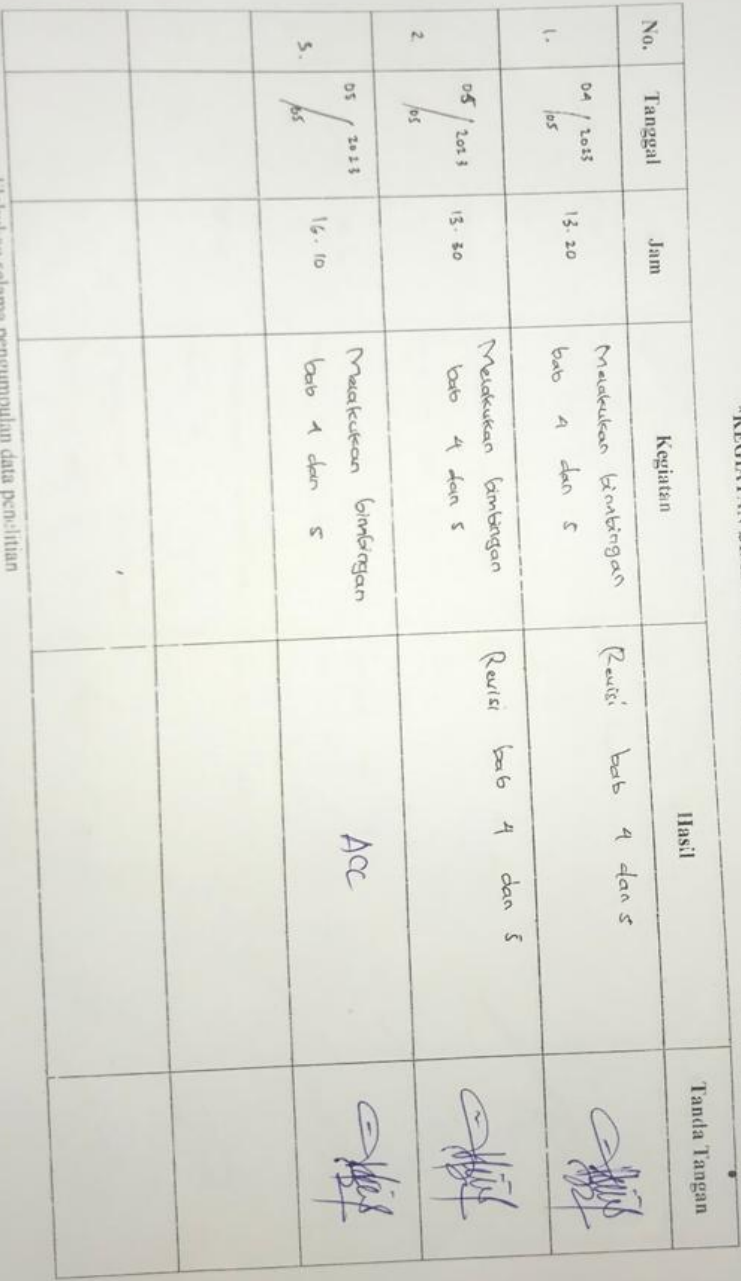 No. Tanggal Jam Kegiatan Hasil Tanda Tangan
1. 04/05 2023 13.20 Melakukan bimbingan Revisi bab 4 dan 5
bab 4 dan 5
2 05/05 2023 13.30 Melakukan bimbingan Revisi bab 4 dan 5
bab 4 dan 5
3. 05/05 2023 16.10 Melakukan bimbingan ACC
bab 4 dan 5
selama pengumpulan data penelitian